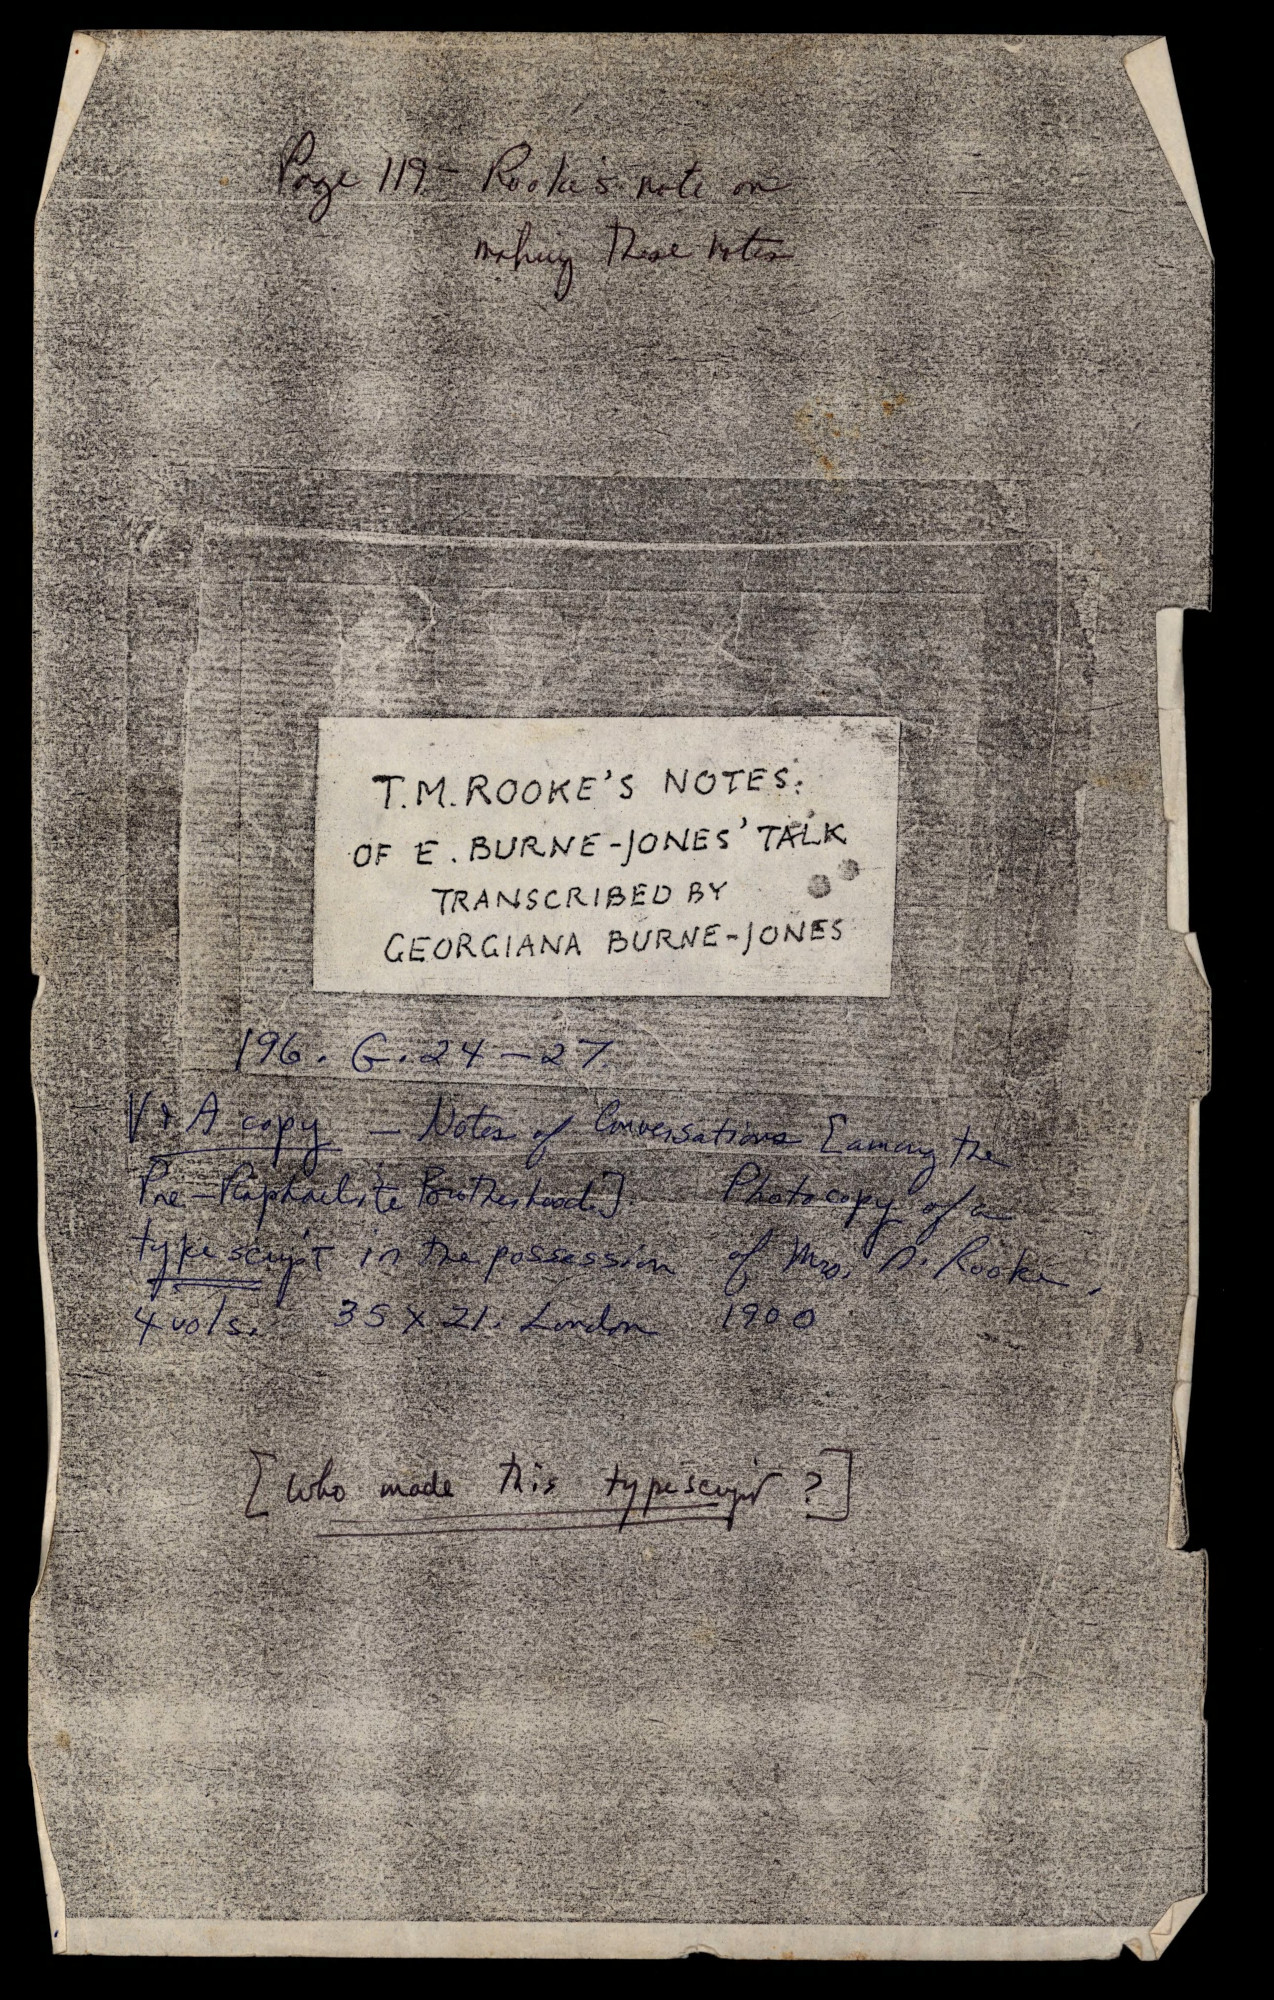 Page 119 - Rooke's note on
making these notes
T.M. ROOKE'S NOTES:
OF E. BURNE-JONES' TALK
TRANSCRIBED BY
GEORGIANA BURNE-JONES
196. G. 24-27.
V & A copy - Notes of Conversations [among the
Pre-Raphaelite Brotherhood.] Photocopy of a
typescript in the possession of Mrs. D. Rooke.
4 vols. 35 x 21. London 1900
[Who made this typescript?]